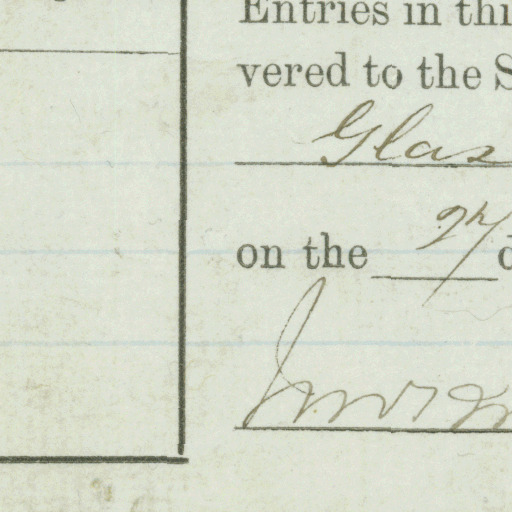 Entries in thi
vered to the S
Glas
on the 27 d